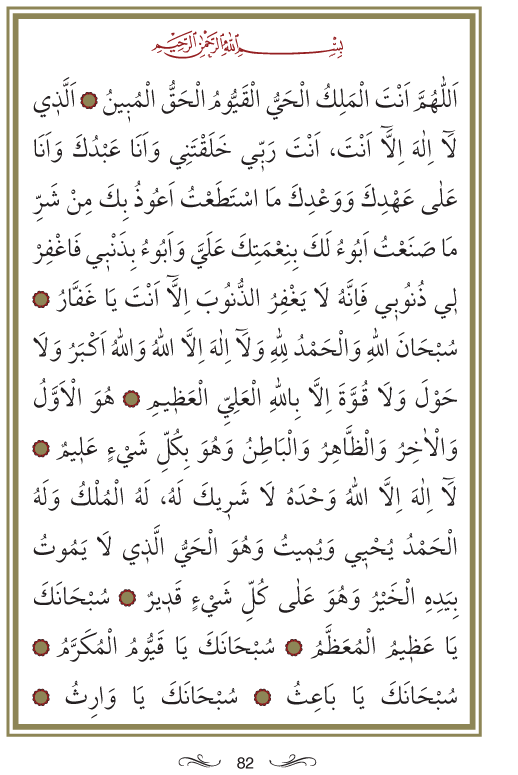 بِسْمِ اللّٰهِ الرَّحْمٰنِ الرَّحِيمِ
اَللّٰهُمَّ اَنْتَ الْمَلِكُ الْحَيُّ الْقَيُّومُ الْحَقُّ الْمُب۪ينُ ۞ اَلَّذ۪ي
لَٓا اِلٰهَ اِلَّٓا اَنْتَ، اَنْتَ رَبّ۪ي خَلَقْتَن۪ي وَاَنَا عَبْدُكَ وَاَنَا
عَلٰى عَهْدِكَ وَوَعْدِكَ مَا اسْتَطَعْتُ اَعُوذُ بِكَ مِنْ شَرِّ
مَا صَنَعْتُ اَبُوءُ لَكَ بِنِعْمَتِكَ عَلَيَّ وَاَبُوءُ بِذَنْب۪ي فَاغْفِرْ
ل۪ي ذُنُوب۪ي فَاِنَّهُ لَا يَغْفِرُ الذُّنُوبَ اِلَّٓا اَنْتَ يَا غَفَّارُ ۞
سُبْحَانَ اللّٰهِ وَالْحَمْدُ لِلّٰهِ وَلَٓا اِلٰهَ اِلَّا اللّٰهُ وَاللّٰهُ اَكْبَرُ وَلَا
حَوْلَ وَلَا قُوَّةَ اِلَّا بِاللّٰهِ الْعَلِيِّ الْعَظ۪يمِ ۞ هُوَ الْاَوَّلُ
وَالْاٰخِرُ وَالْظَّاهِرُ وَالْبَاطِنُ وَهُوَ بِكُلِّ شَيْءٍ عَل۪يمٌ ۞
لَٓا اِلٰهَ اِلَّا اللّٰهُ وَحْدَهُ لَا شَر۪يكَ لَهُ، لَهُ الْمُلْكُ وَلَهُ
الْحَمْدُ يُحْي۪ي وَيُم۪يتُ وَهُوَ الْحَيُّ الَّذ۪ي لَا يَمُوتُ
بِيَدِهِ الْخَيْرُ وَهُوَ عَلٰى كُلِّ شَيْءٍ قَد۪يرٌ ۞ سُبْحَانَكَ
يَا عَظ۪يمُ الْمُعَظَّمُ ۞ سُبْحَانَكَ يَا قَيُّومُ الْمُكَرَّمُ ۞
سُبْحَانَكَ يَا بَاعِثُ ۞ سُبْحَانَكَ يَا وَارِثُ ۞
82